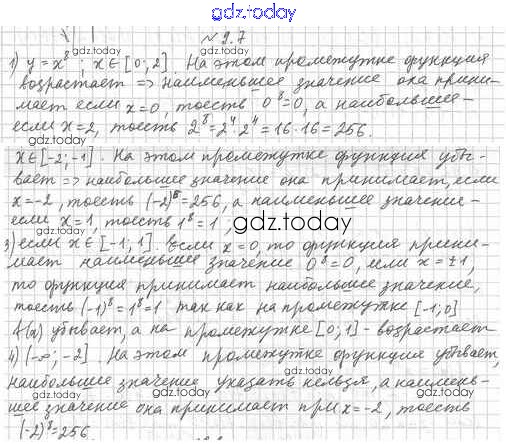 gdz.today
№ 9.7
1) y = x⁸; x ∈ [0; 2]. На этом промежутке функция
возрастает => наименьшее значение она прини-
мает если x = 0, тоесть 0⁸ = 0, а наибольшее -
если x = 2, тоесть 2⁸ = 2⁴ · 2⁴ = 16 · 16 = 256.
x ∈ [-2; -1]. На этом промежутке функция убы-
вает => наибольшее значение она принимает, если
x = -2, тоесть (-2)⁸ = 256, а наименьшее значение -
если x = 1, тоесть 1⁸ = 1
gdz.today
3) если x ∈ [-1; 1]. Если x = 0, то функция прини-
мает наименьшее значение 0⁸ = 0, если x = ±1,
то функция принимает наибольшее значение,
тоесть (-1)⁸ = 1⁸ = 1 так как на промежутке [-1; 0]
f(x) убывает, а на промежутке [0; 1] - возрастает
4) (-∞; -2]. На этом промежутке функция убывает,
наибольшее значение указать нельзя, а наимень-
шее значение она принимает при x = -2, тоесть
(-2)⁸ = 256
gdz.today